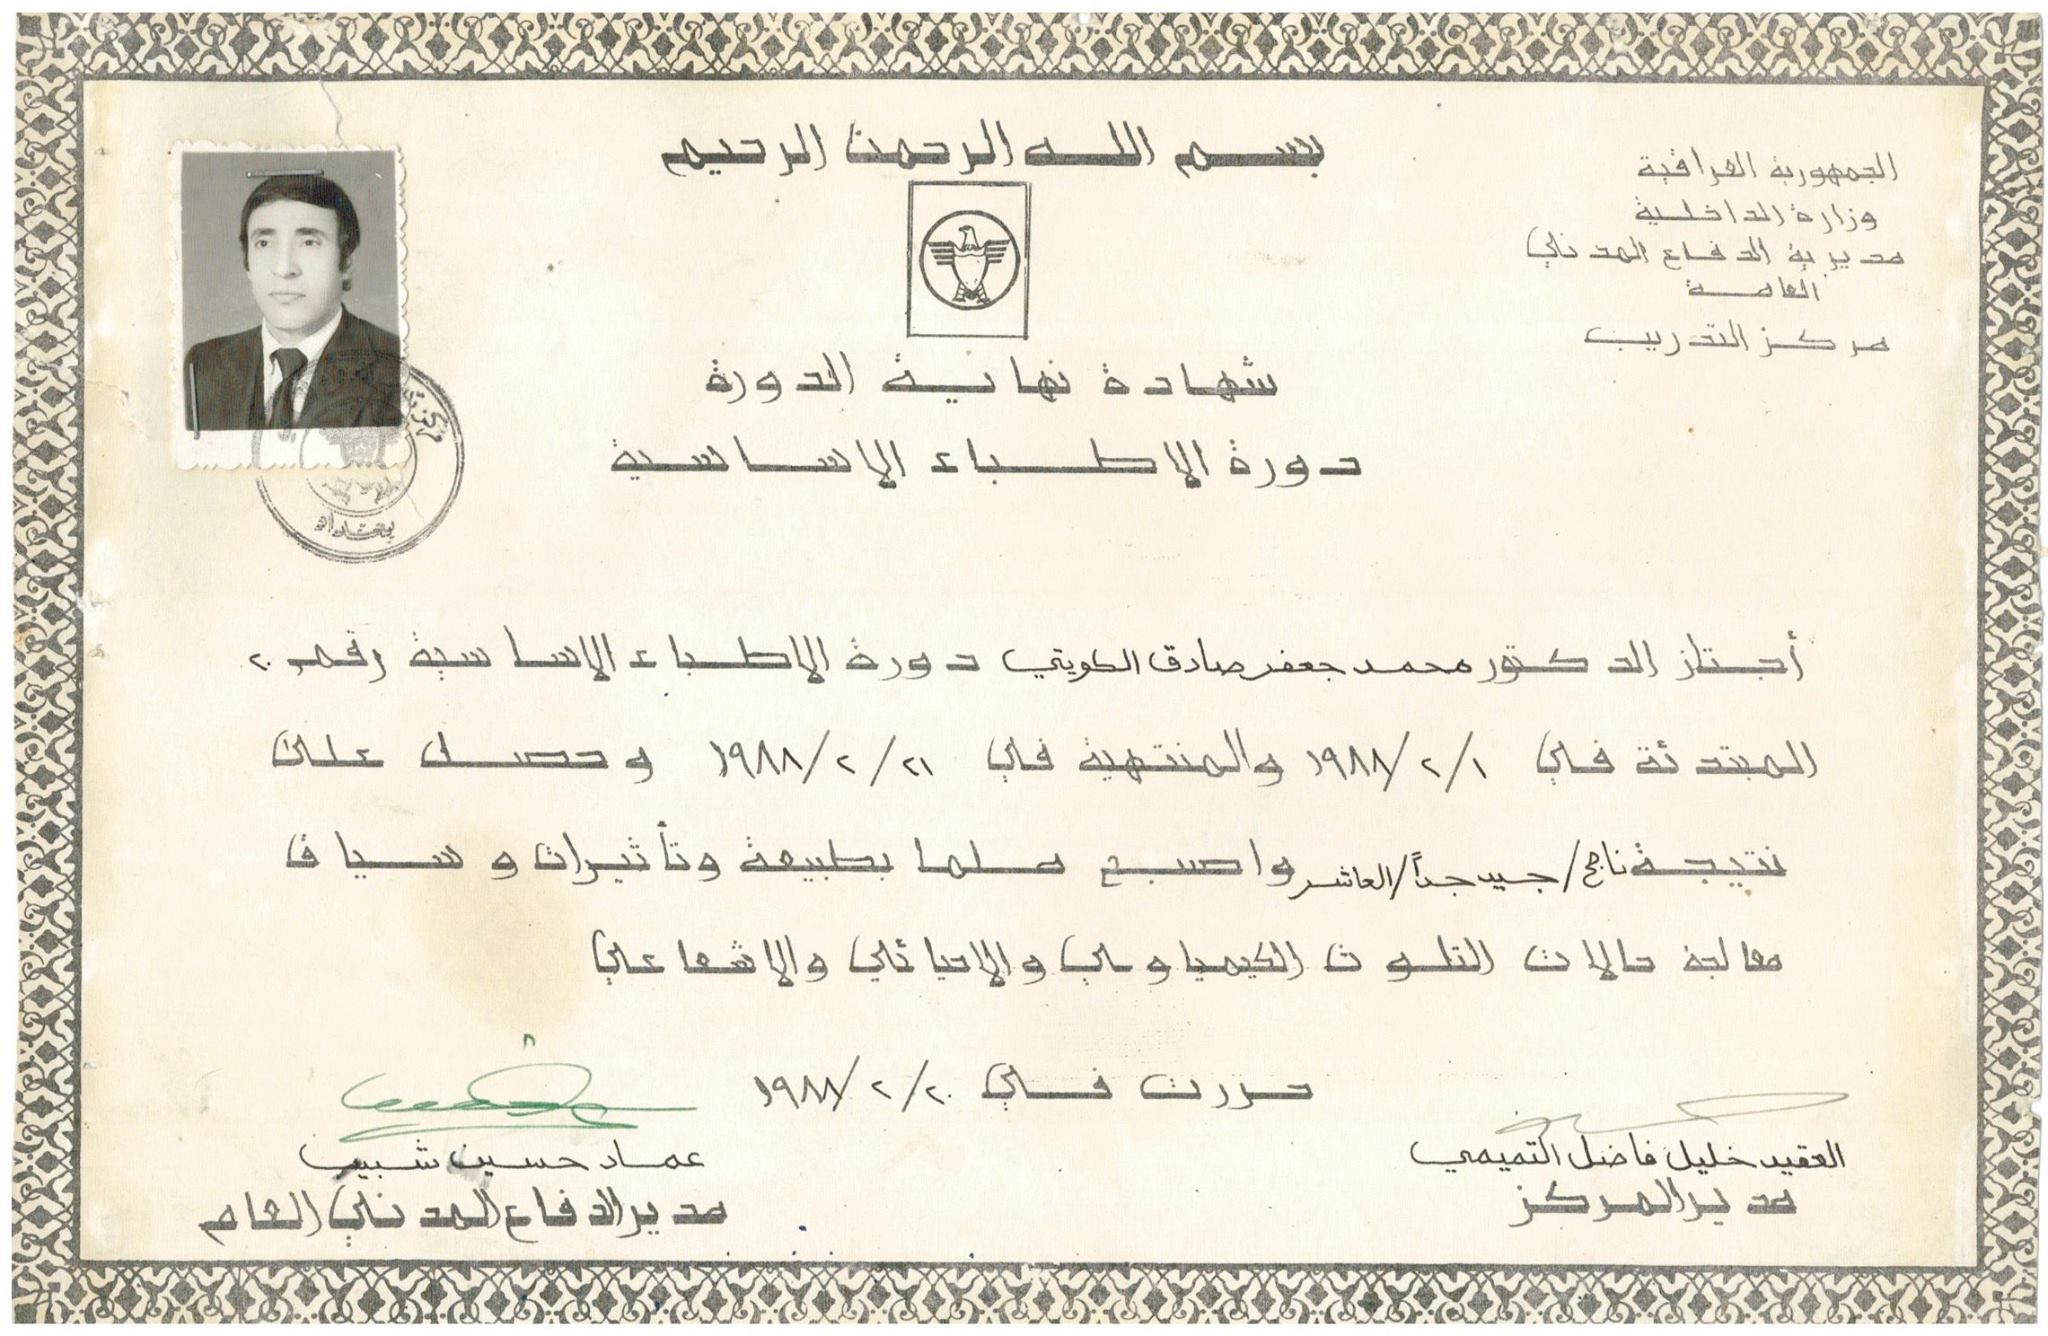 بسم الله الرحمن الرحيم
الجمهورية العراقية
وزارة الداخلية
مديرية الدفاع المدني
العامة
مركز التدريب
شهادة نهاية الدورة
دورة الاطباء الاساسية
بغداد
أجتاز الدكتور محمد جعفر صادق الكويتي دورة الاطباء الاساسية رقم ٢٠
المبتدئة في ١/ ٢/ ١٩٨٨ والمنتهية في ٢١/ ٢/ ١٩٨٨ وحصل على
نتيجة ناجح/جيد جداً/العاشر واصبح ملما بطبيعة وتأثيرات وسياق
معالجة حالات التلوث الكيمياوي والاحيائي والاشعاعي
حررت في ٢٠/ ٢/ ١٩٨٨
العقيد خليل فاضل التميمي
مدير المركز
عماد حسين شبيب
مدير الدفاع المدني العام